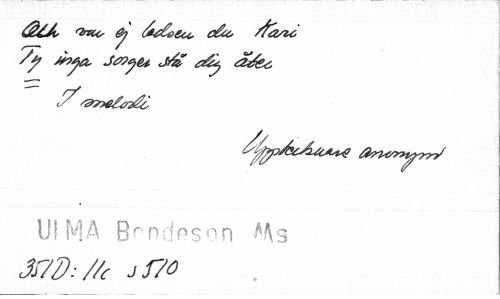 Och var ej ledsen du Kari
Ty inga sorger stå dig åter
I melodi
Upptecknare anonym
ULMA Bendeson Ms
351D: 11c s 510